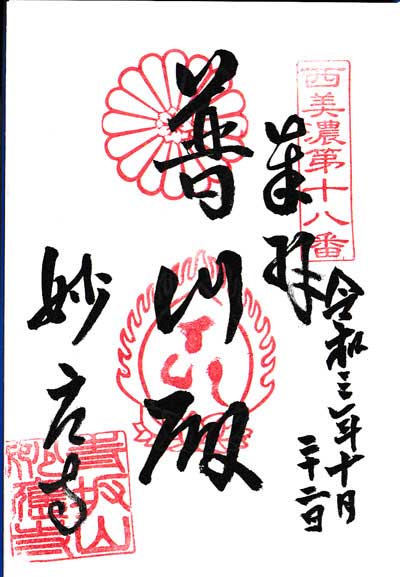 西美濃第十八番
奉拝
令和三年十月
二十二日
普門殿
妙応寺
青坂山
妙應寺